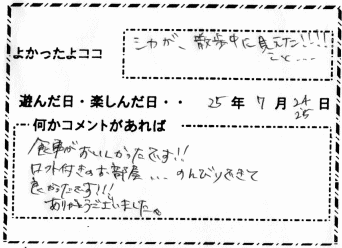 よかったよココ
シカが、散歩中に見えた!!!!
こと...
遊んだ日・楽しんだ日・・ 25 年 7 月 24 25 日
何かコメントがあれば
食事がおいしかったです!!
ロフト付きのお部屋... のんびりできて
良かったです!!!
ありがとうございました。